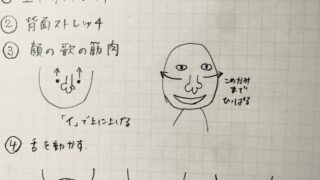 ② 背面ストレッチ
③ 顔の歌の筋肉
こめかみ
まで
ひっぱる
「イ」で上に上げる
④ 舌を動かす.